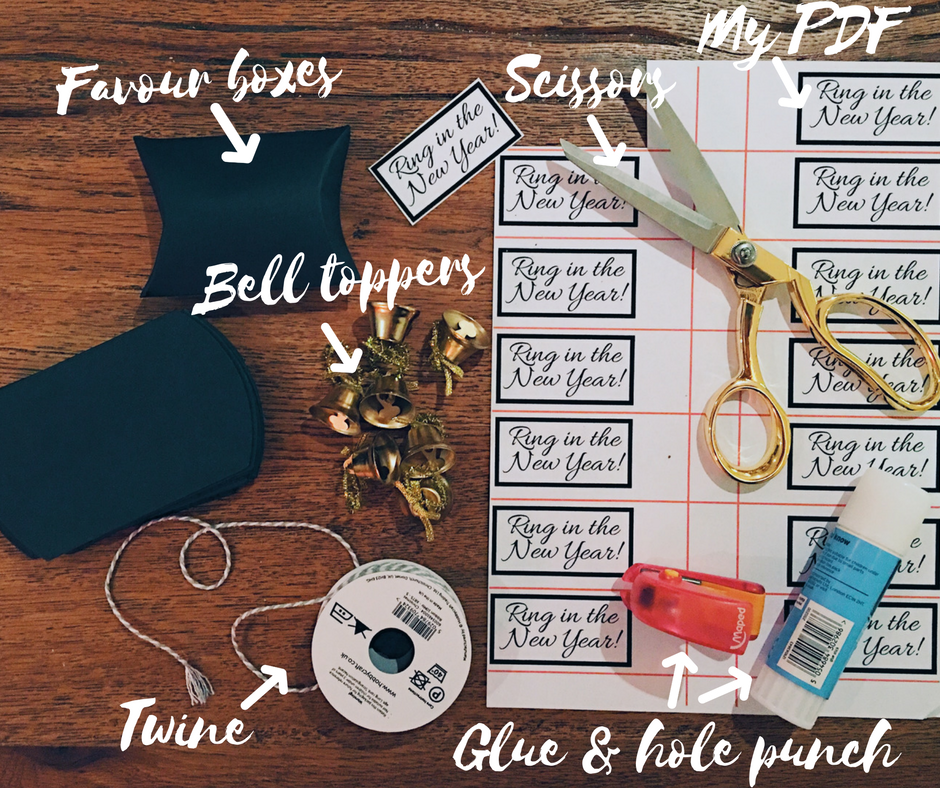 My PDF
Favour boxes
Scissors
Ring in the
New Year!
Ring in the
New Year!
Ring in
New Year!
Ring in the
New Year!
Ring in the
Ring in the
New Year!
Ring in the
New Year!
Ring in the
New Year!
Ring in the
New Year!
Ring in the
New Year!
Ring in the
New Year!
Ring in the
New Year!
Ring in the
New Year!
Bell toppers
www.hobbycraft.co.uk
40°
Maped
know
Twine
Glue & hole punch